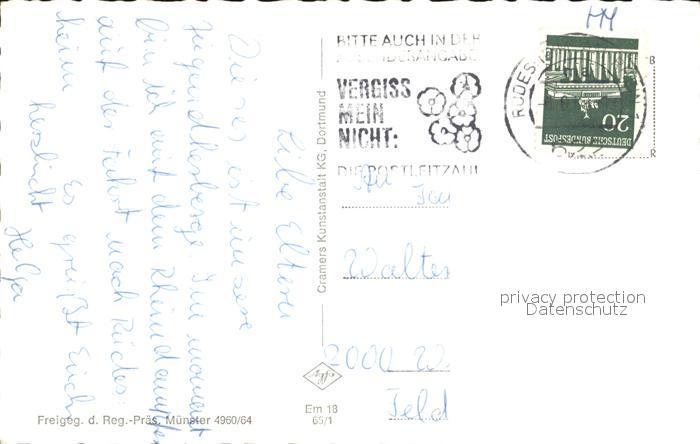 Liebe Eltern
Dieses ist unsere
Jugendherberge. Im moment
bin ich mit dem Rheindampfer
auf der Fahrt nach Rüdes-
heim. Es grüßt Euch
herzlichst Helga
Cramers Kunstanstalt KG, Dortmund
BITTE AUCH IN DER
ABSENDERANGABE
VERGISS
MEIN
NICHT:
DIE POSTLEITZAHL
RÜDESHEIM
20
DEUTSCHE BUNDESPOST
An
Walter
2000 W
Feld
privacy protection
Datenschutz
Freigeg. d. Reg.-Präs. Münster 4960/64
Em 18
65/1